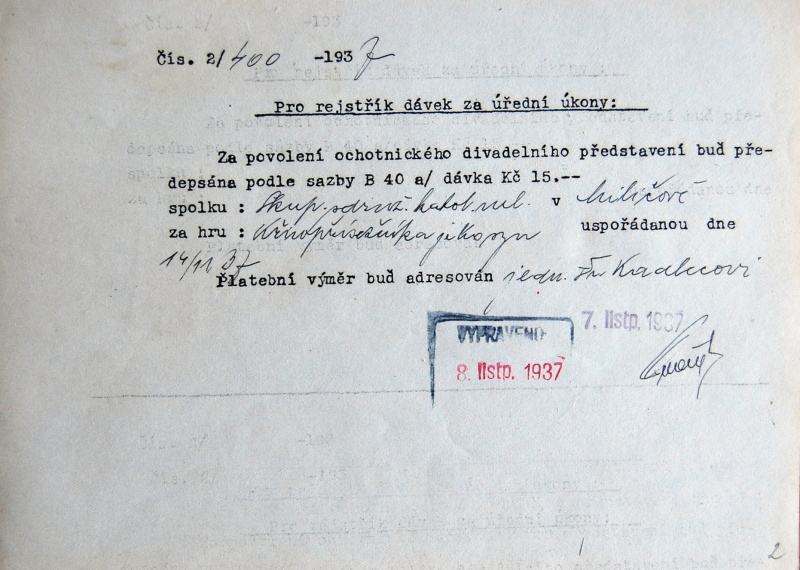 čís. 2/400 -1937
Pro rejstřík dávek za úřední úkony:
Za povolení ochotnického divadelního představení buď pře-
depsána podle sazby B 40 a/ dávka Kč 15.--
spolku : Skup. sdruž. katol. ml. v Miličově
za hru : uspořádanou dne
14/11 37
Platební výměr buď adresován jedn. Fr. Kadlecovi
7. listp. 1937
VYPRAVENO
8. listp. 1937
2